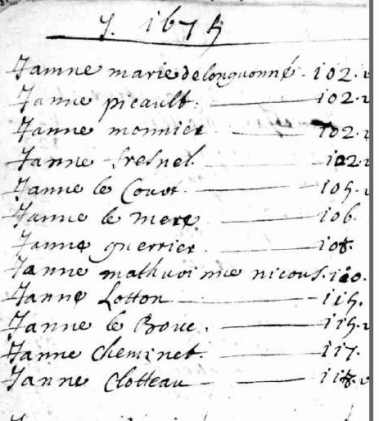 J. 1675
Janne marie delonguonné. 102. v
Janne picault. 102. v
Janne monnier 102. v
Janne fresnel 102. v
Janne le Court. 105. v
Janne le mere. 106.
Janne guerrier. 108.
Janne nicous. 110.
Janne Lotton 115.
Janne le Boue. 115. v
Janne cheminet. 117.
Janne Clotteau 118. v